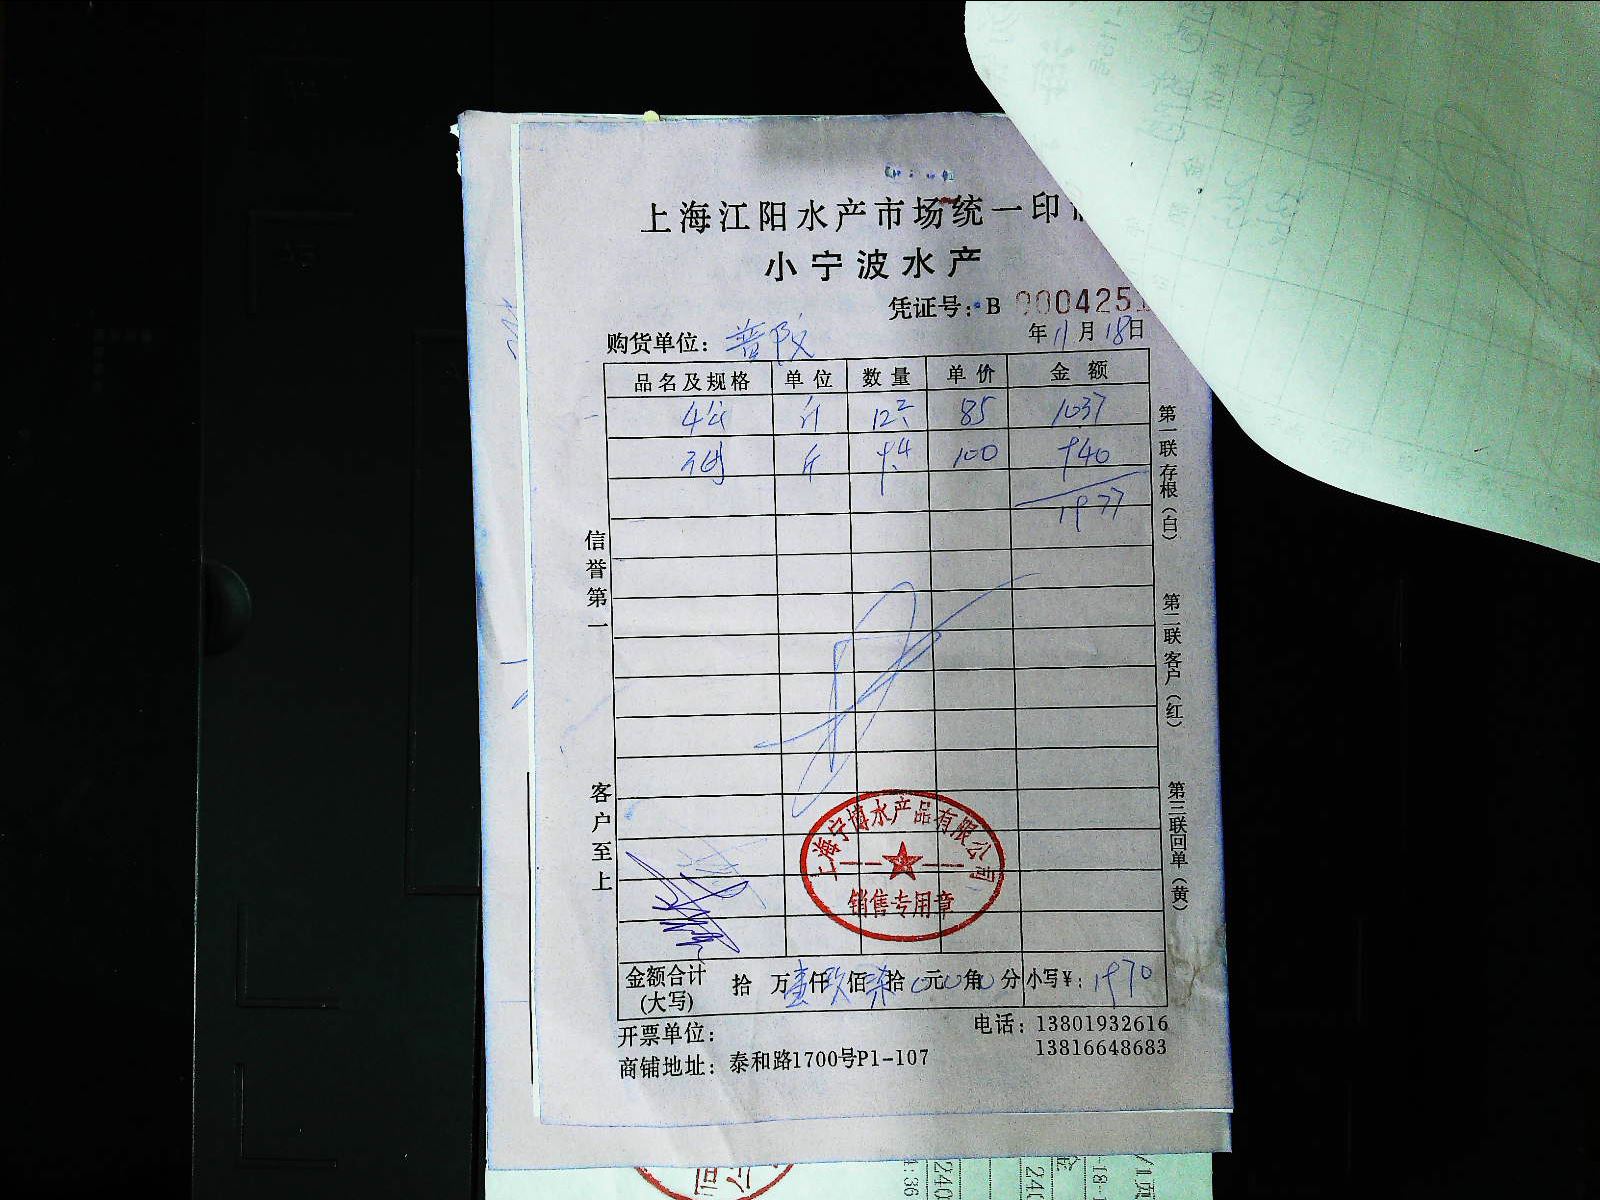 上海江阳水产市场统一印
小宁波水产
凭证号：B 9004251
购货单位：普陀 年11月18日
品名及规格 单位 数量 单价 金额
4公 斤 12.2 85 1037
斤 9.4 100 940
1977
信誉第一
客户至上
第一联存根（白）
第二联客户（红）
第三联回单（黄）
上海宁博水产品有限公司
销售专用章
金额合计（大写） 拾 万壹仟玖佰柒拾0元0角0分 小写¥：1970
开票单位： 电话：13801932616
13816648683
商铺地址：泰和路1700号P1-107